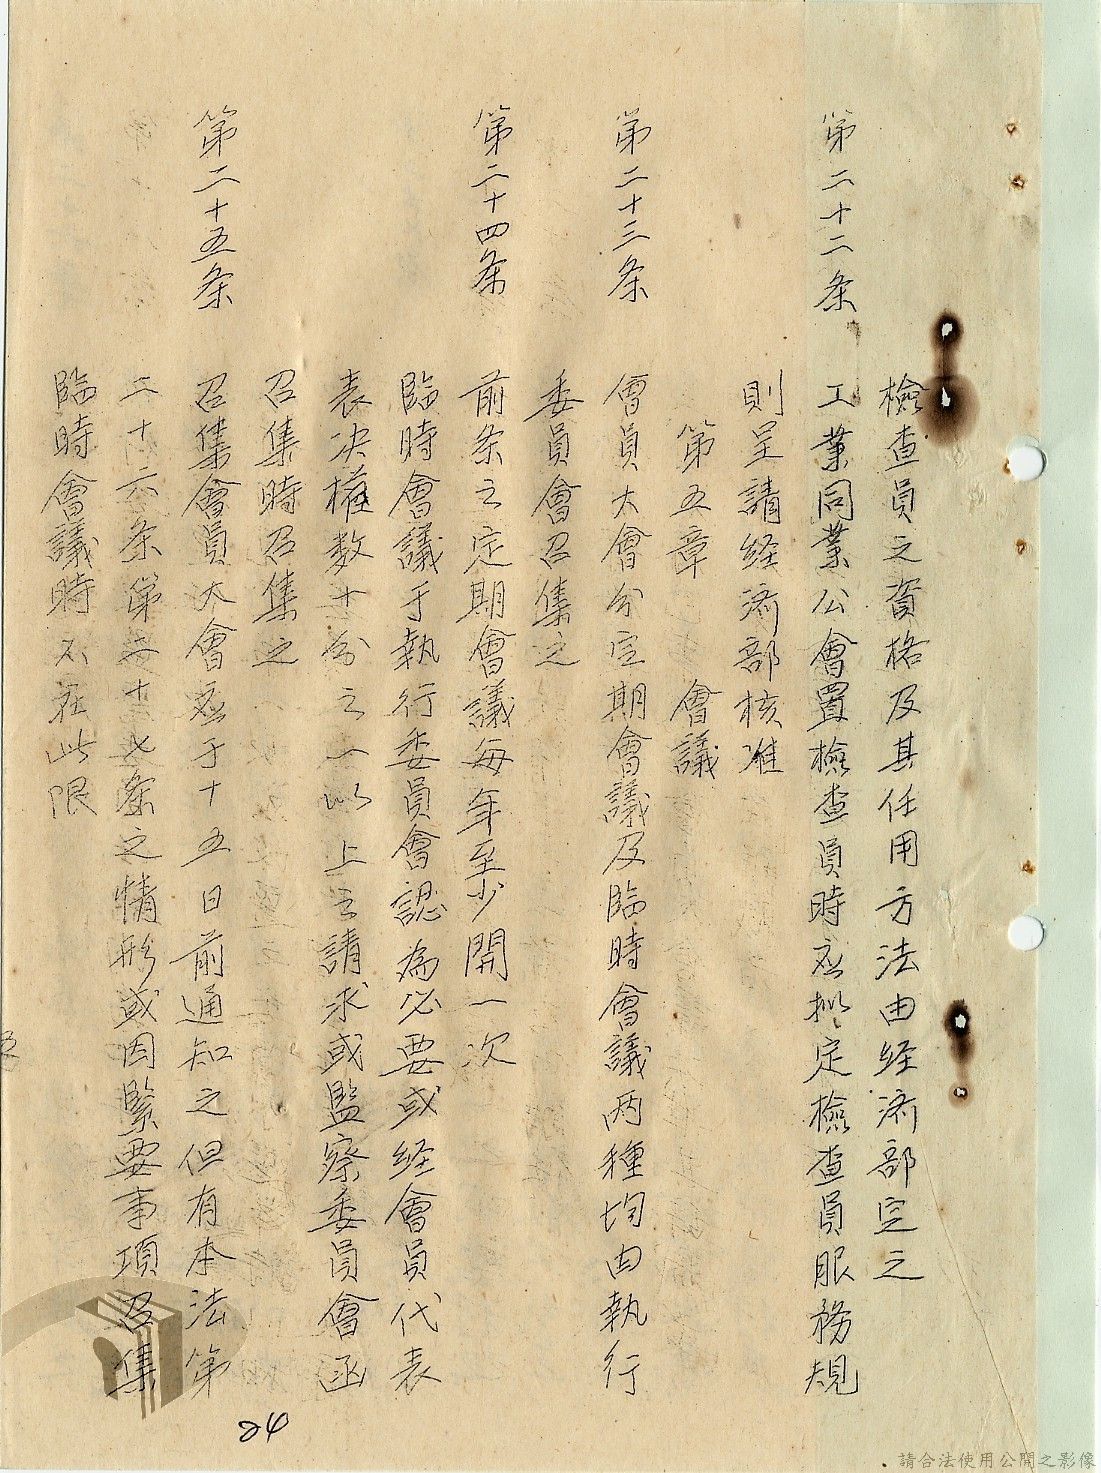 檢查員之資格及其任用方法由経済部定之
第二十二条 工業同業公會置檢查員時应拟定檢查員服務規
則呈請経済部核准
第五章 會議
第二十三条 會員大會分定期會議及臨時會議两種均由執行
委員會召集之
第二十四条 前条之定期會議每年至少開一次
臨時會議于執行委員會認為必要或経會員代表
表决權数十分之一以上之請求或監察委員會函
召集時召集之
第二十五条 召集會員大會应于十五日前通知之但有本法第
二十六条第二十七条之情形或因緊要事項召集
臨時會議時不在此限
24
請合法使用公開之影像